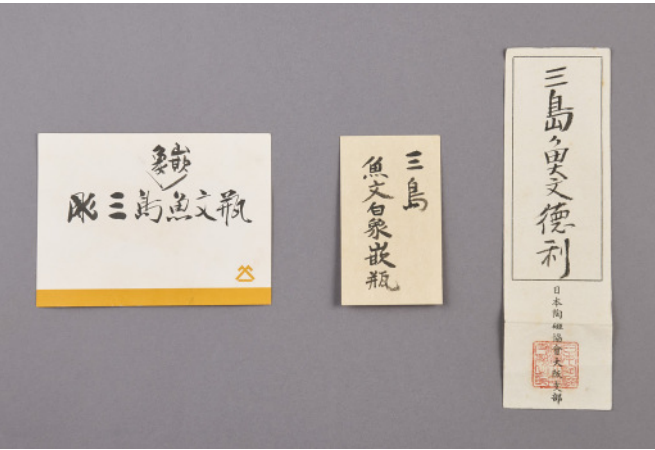 象嵌
彫三島魚文瓶
三島
魚文白象嵌瓶
三島魚文徳利
日本陶磁協會大阪支部